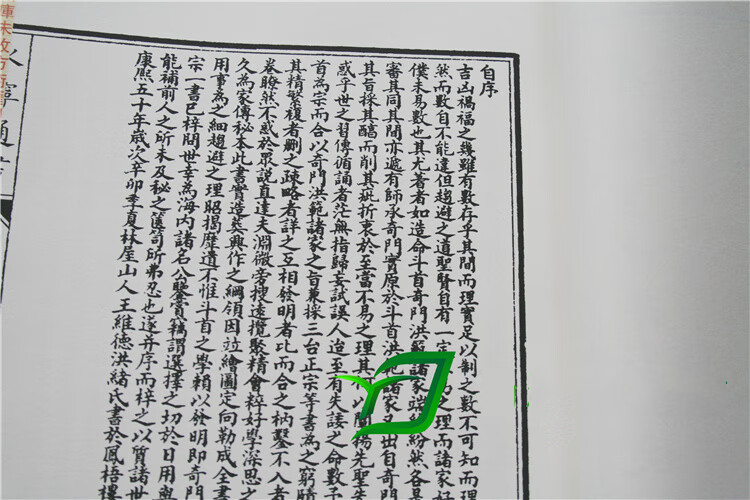 自序
吉凶禍福之幾雖有數存乎其間而理實足以制之數不可知而理
然而數自不能違但趨避之道聖賢自有一定
之理而諸家好
僕未易數也其尤著者如造命斗首奇門洪範諸家
紛然各是
審其同其間亦遞有師承奇門實原於斗首洪範諸家又出自奇門
其旨採其醕而削其疵折衷於至當不易之理其
以闡揚先聖先
或乎世之習傳循誦者茫無指歸妄試誤人迨至有失諉之命數予
首為宗而合以奇門洪範諸家之旨兼採三台正宗等書為之窮
其精繁複者刪之疎略者詳之互相發明者比而合之枘鑿不入者
卷瞭然不惑於眾說直達夫淵微旁搜遠攬聚精會粹好學深思之
久為家傳秘本此書實造葬興作之綱領因竝繪圖定向勒成全書
用事為之細趨避之理昭揭靡遺不惟斗首之學賴以發明即奇門
宗一書已梓問世幸為海內諸名公鑒賞竊謂選擇之切於日用與
能補前人之所未及秘之篋笥所弗忍也遂并序而梓之以質諸世
康熙五十年歲次辛卯季夏林屋山人王維德洪緒氏書於鳳梧樓